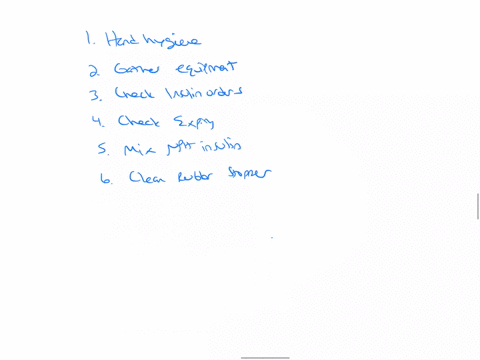 1. Hand hygiene
2. Gather equipment
3. Check Insulin orders
4. Check Expiry
5. Mix NPH insulin
6. Clean Rubber Stopper